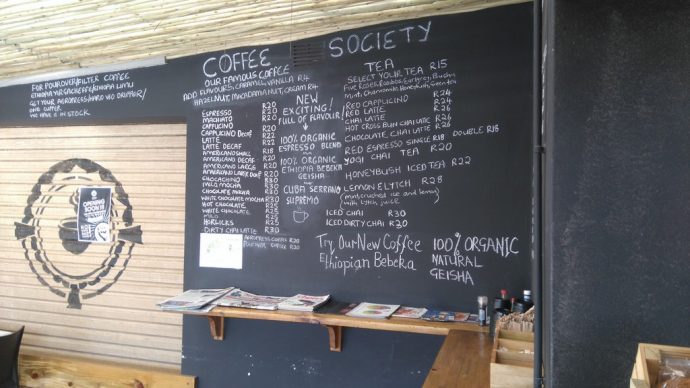 COFFEE SOCIETY
FOR POUROVER/FILTER COFFEE
ETHIOPIA YIRGACHEFFE/ETHIOPIA LIMU
GET YOUR AEROPRESS/HARIO V60 DRIPPER/
WE HAVE IN STOCK
OPENING
SOON
OUR FAMOUS COFFEE
ADD FLAVOURS: CARAMEL, VANILLA R4
HAZELNUT, MACADAMIA NUT, CREAM R4
ESPRESSO R20
MACHIATO R20
CAPPUCINO R20
CAPPUCINO DECAF R22
LATTE R22
LATTE DECAF
AMERICANO SMALL R18
AMERICANO DECAF R20
AMERICANO LARGE R20
AMERICANO LARGE DECAF
CHOCACHINO R30
MILO MOCHA R30
CHOCOLATE MOCHA R30
WHITE CHOCOLATE MOCHA R30
HOT CHOCOLATE R25
WHITE CHOCOLATE R25
MILO R25
HORLICKS R25
DIRTY CHAI LATTE R30
AEROPRESS COFFEE R20
COFFEE R20
NEW
EXCITING!
FULL OF FLAVOUR!
100% ORGANIC
ESPRESSO BLEND
100% ORGANIC
ETHIOPIA BEBEKA
GEISHA
CUBA SERRANO
SUPREMO
TEA
SELECT YOUR TEA R15
Five Roses, Rooibos, Earl Grey, Buchu
Mint, Chamomile, Honeybush, Green tea
RED CAPPUCINO R24
RED LATTE R24
CHAI LATTE R26
HOT CROSS BUN CHAI LATTE R26
CHOCOLATE CHAI LATTE R26
RED ESPRESSO SINGLE R18 DOUBLE R18
YOGI CHAI TEA R20
HONEYBUSH ICED TEA R22
LEMON ELYTCH R28
(mint, crushed ice and lemon)
with Litchi juice
ICED CHAI R30
ICED DIRTY CHAI R30
Try Our New Coffee
Ethiopian Bebeka
100% ORGANIC
NATURAL
GEISHA